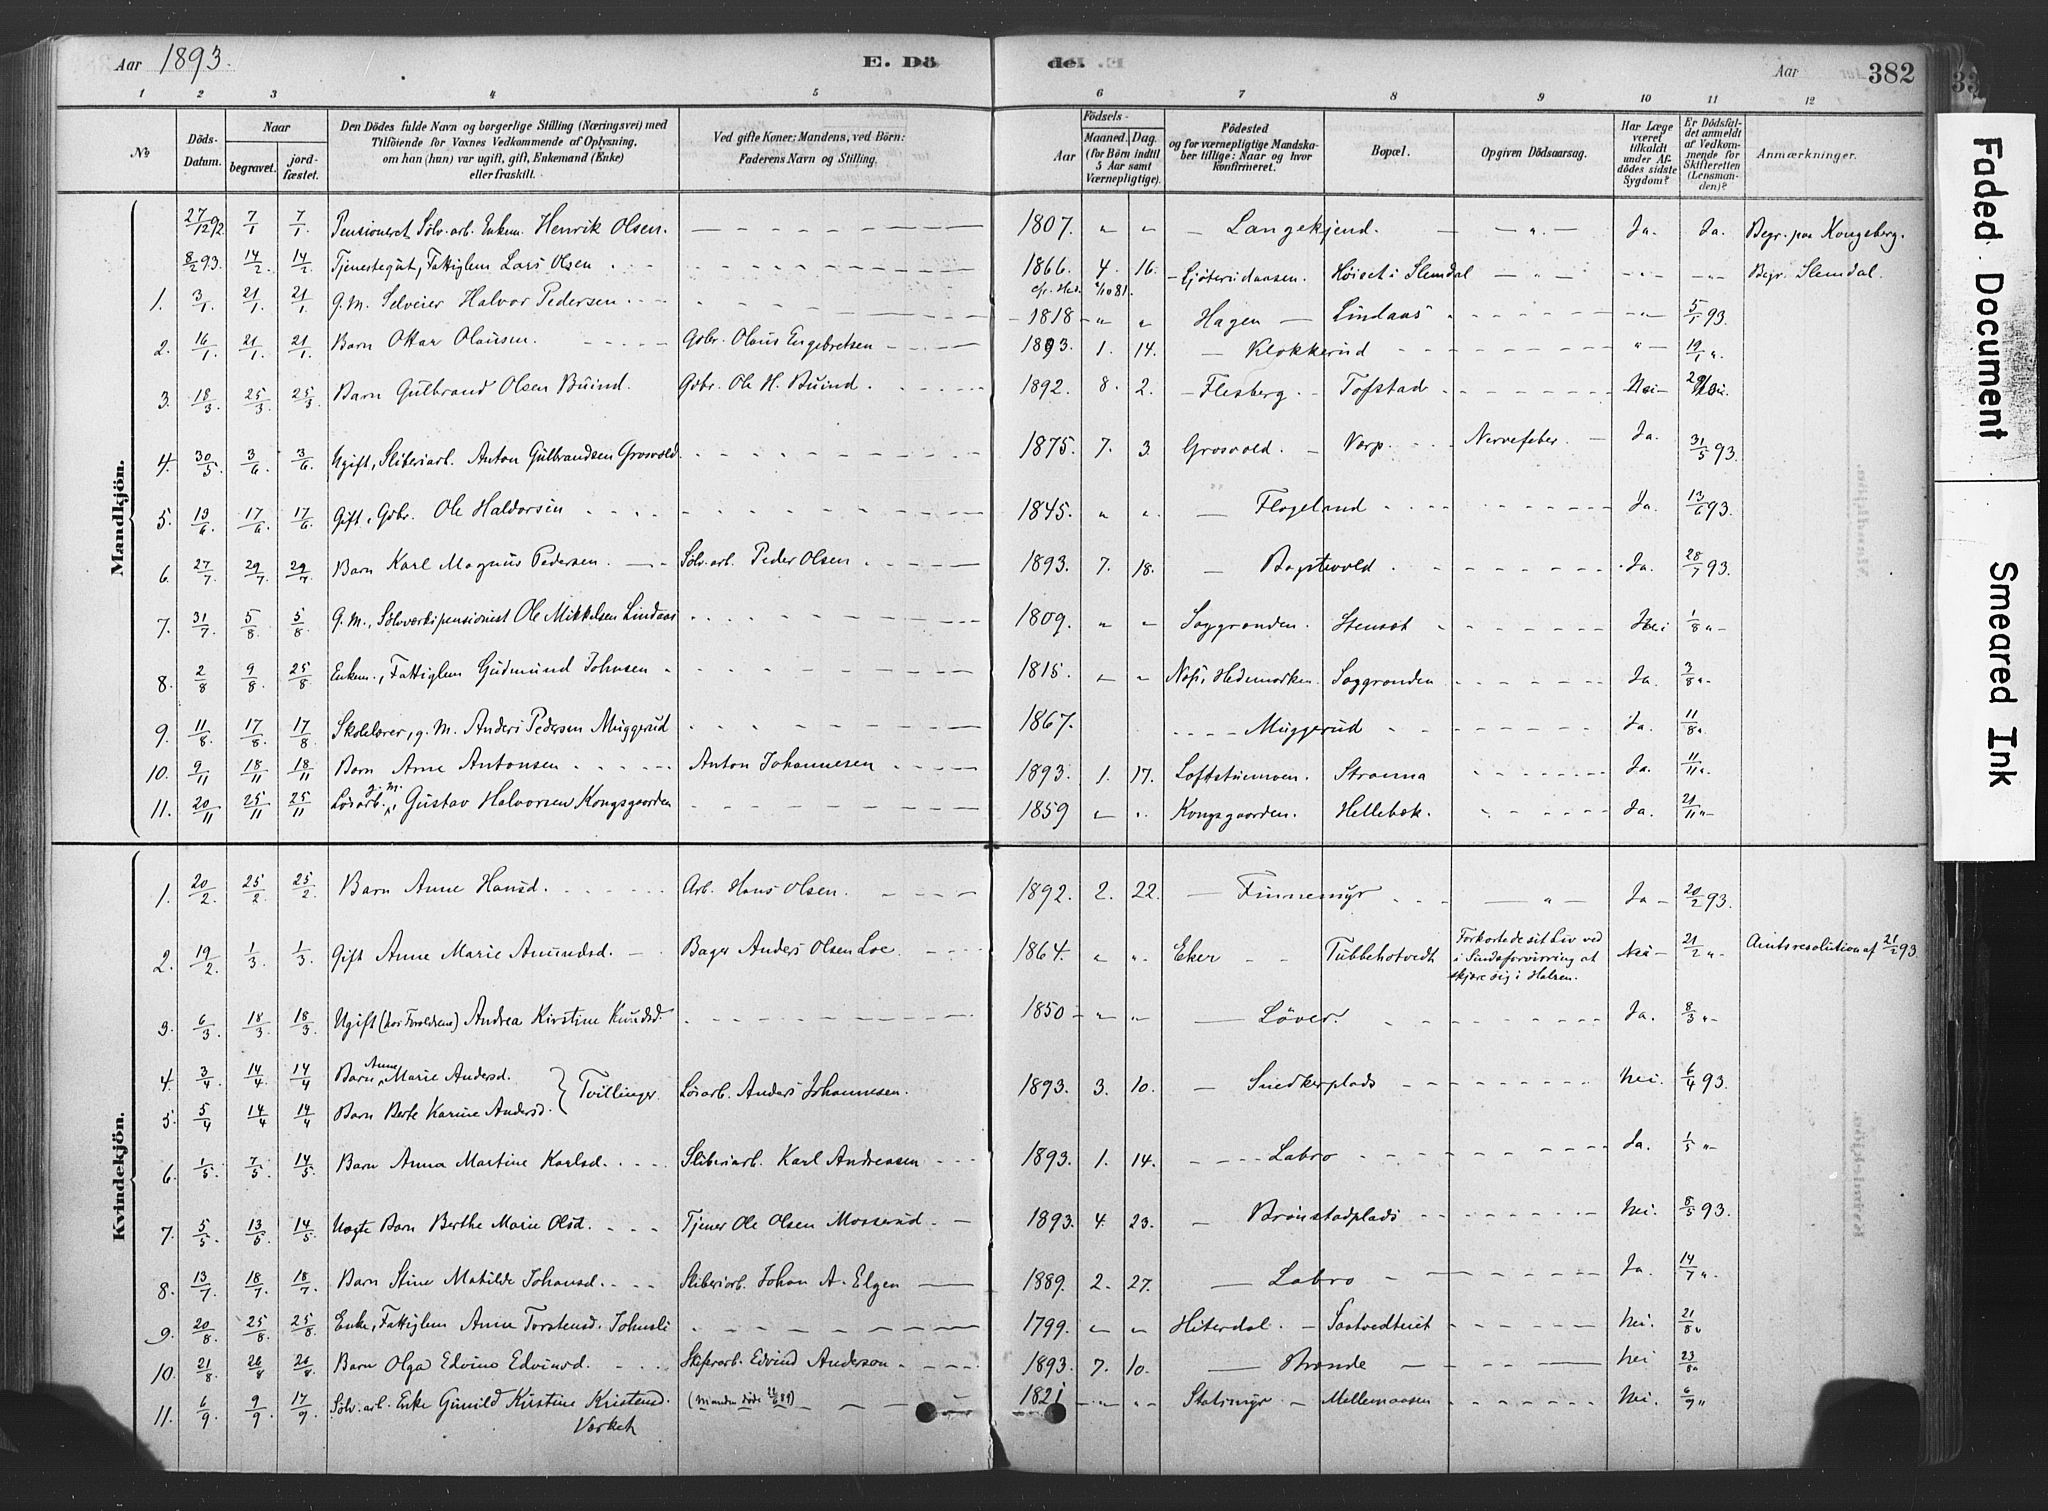 Aar 1893.
E. Dö
de. E.
Aar
382
1 2 3 4 5 6 7 8 9 10 11 12
No
Döds-Datum.
Naar
begravet.
jord-fæstet.
Den Dödes fulde Navn og borgerlige Stilling (Næringsvei) med
Tilföiende for Voxnes Vedkommende af Oplysning,
om han (hun) var ugift, gift, Enkemand (Enke)
eller fraskilt.
Ved gifte Koner: Mandens, ved Börn:
Faderens Navn og Stilling.
Födsels-
Aar
Maaned. Dag.
(for Börn indtil
5 Aar samt
Værnepligtige).
Födested
og for værnepligtige Mandska-
ber tillige: Naar og hvor
konfirmeret.
Bopæl.
Opgiven Dödsaarsag.
Har Læge
været
tilkaldt
under Af-
dödes sidste
Sygdom?
Er Dödsfal-
det anmeldt
af Vedkom-
mende for
Skifteretten
(Lensman-
den)?
Anmærkninger.
Mandkjön.
27/12 92 7/1 7/1 Pensioneret Sölv.arb. Enkem. Henrik Olsen. 1807. " " Langekjend. " Ja. Ja. Begr. paa Kongsberg.
8/2 93. 14/2. 14/2. Tjenestegut, Fattiglem Lars Olsen 1866. 4. 16. Höiset i Slemdal " " Begr. Slemdal.
1. 3/1 21/1. 21/1. G.M. Selveier Halvor Pedersen 1818 " " Hagen Lindaas " 5/1 93.
2. 16/1. 21/1. 21/1. Barn Ottar Olausen. Gdbr. Olaus Engebretsen 1893. 1. 14. Klokkerud " 19/1 "
3. 18/3 25/3 25/3 Barn Gulbrand Olsen Buind. Gdbr. Ole H. Buind. 1892. 8. 2. Flesberg Tofstad Nei
4. 30/5 3/6 3/6 Ugift, Sliberiarb. Anton Gulbrandsen Grosvold 1875. 7. 3. Grosvold. Varp. Nervefeber. Ja. 31/5 93.
5. 13/6 17/6. 17/6 Gift, Gdbr. Ole Haldorsen 1845. " " Flageland Ja. 13/6 93.
6. 27/7 29/7 29/7 Barn Karl Magnus Pedersen. Sölv.arb. Peder Olsen 1893. 7. 18. Bagstevold Ja. 28/7 93.
7. 31/7. 5/8 5/8 G.M., Sölvverkspensionist Ole Mikkelsen Lindaas 1809. " " Saggrenden. Stenset Nei 1/8 "
8. 2/8 9/8 25/8 Enkem., Fattiglem Gudmund Johnsen 1815. " " Næs, Hedemarken. Saggrenden Ja. 3/8 "
9. 11/8. 17/8. 17/8 Skolelærer, g. M. Anders Pedersen Muggerud 1867. Muggerud Ja. 11/8 "
10. 9/11 18/11 18/11 Barn Arne Antonsen Anton Johannesen 1893. 1. 17. Loftstuemoen. Stroma Ja. 11/11 "
11. 20/11 25/11 25/11 Lösarb. g. m., Gustav Halvorsen Kongsgaarden 1859 " " Kongsgaarden. Hellebæk. Ja. 21/11 "
Kvindekjön.
1. 20/2. 25/2 25/2 Barn Anne Hansd. Arb. Hans Olsen. 1892. 2. 22. Finnemyr " Ja 20/2 93.
2. 19/2. 1/3. 1/3. Gift Anne Marie Amundsd. Bager Anders Olsen Loe 1864. " " Eker Tubbehotvedt Forkortede sit Liv ved
i Sindsforvirring at
skjære sig i Halsen. Nei 21/2 " Amtsresolution af 21/2 93.
3. 6/3. 18/3. 18/3. Ugift (hos Forældrene) Andrea Kirstine Knudsd. 1850 " " Löver. Ja. 8/3 "
4. 3/4 14/4. 14/4 Barn Anne Marie Andersd. } Tvillinger. Lösarb. Anders Johannesen. 1893. 3. 10. Snedkerplads Nei. 6/4 93.
5. 5/4 14/4 14/4 Barn Berte Karine Andersd.
6. 1/5. 7/5 14/5. Barn Anna Martine Karlsd. Sliberiarb. Karl Andreasen 1893. 1. 14. Labro Ja. 1/5 "
7. 5/5 13/5. 14/5 Uægte Barn Berthe Marie Olsd. Tjener Ole Olsen Mosserud. 1893. 4. 23. Brönstadplads Nei. 8/5 93.
8. 13/7. 18/7. 18/7. Barn Stine Matilde Johansd. Sliberiarb. Johan A. Elgen 1889. 2. 27. Labro Ja. 14/7 "
9. 20/8. 25/8. 25/8. Enke, Fattiglem Anne Torstensd. Johnsli 1799. " " Hiterdal. Saatvedteiet Nei. 21/8 "
10. 21/8. 26/8 26/8 Barn Olga Edvine Edvinsd. Edvind Anderson 1893. 7. 10. Nei 23/8 "
11. 6/9 9/9. 17/9. Sölv.arb. Enke Gunild Kirstine Kristensd. (Manden döde 1821 " " Mellemaasen Nei. 6/9 "
Verket
Faded Document
Smeared Ink